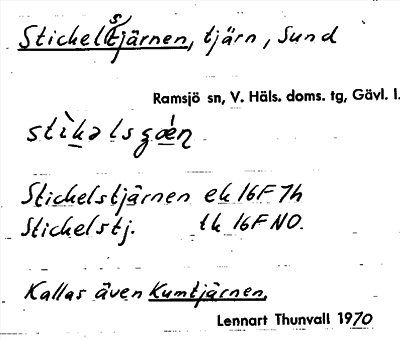 Stickelstjärnen, tjärn, Sund
Ramsjö sn, V. Häls. doms. tg, Gävl. l.
stìkəlsgæ̀ṇ
Stickelstjärnen ek 16F 7h
Stickelstj. tk 16F NO.
Kallas även Kumtjärnen.
Lennart Thunvall 1970